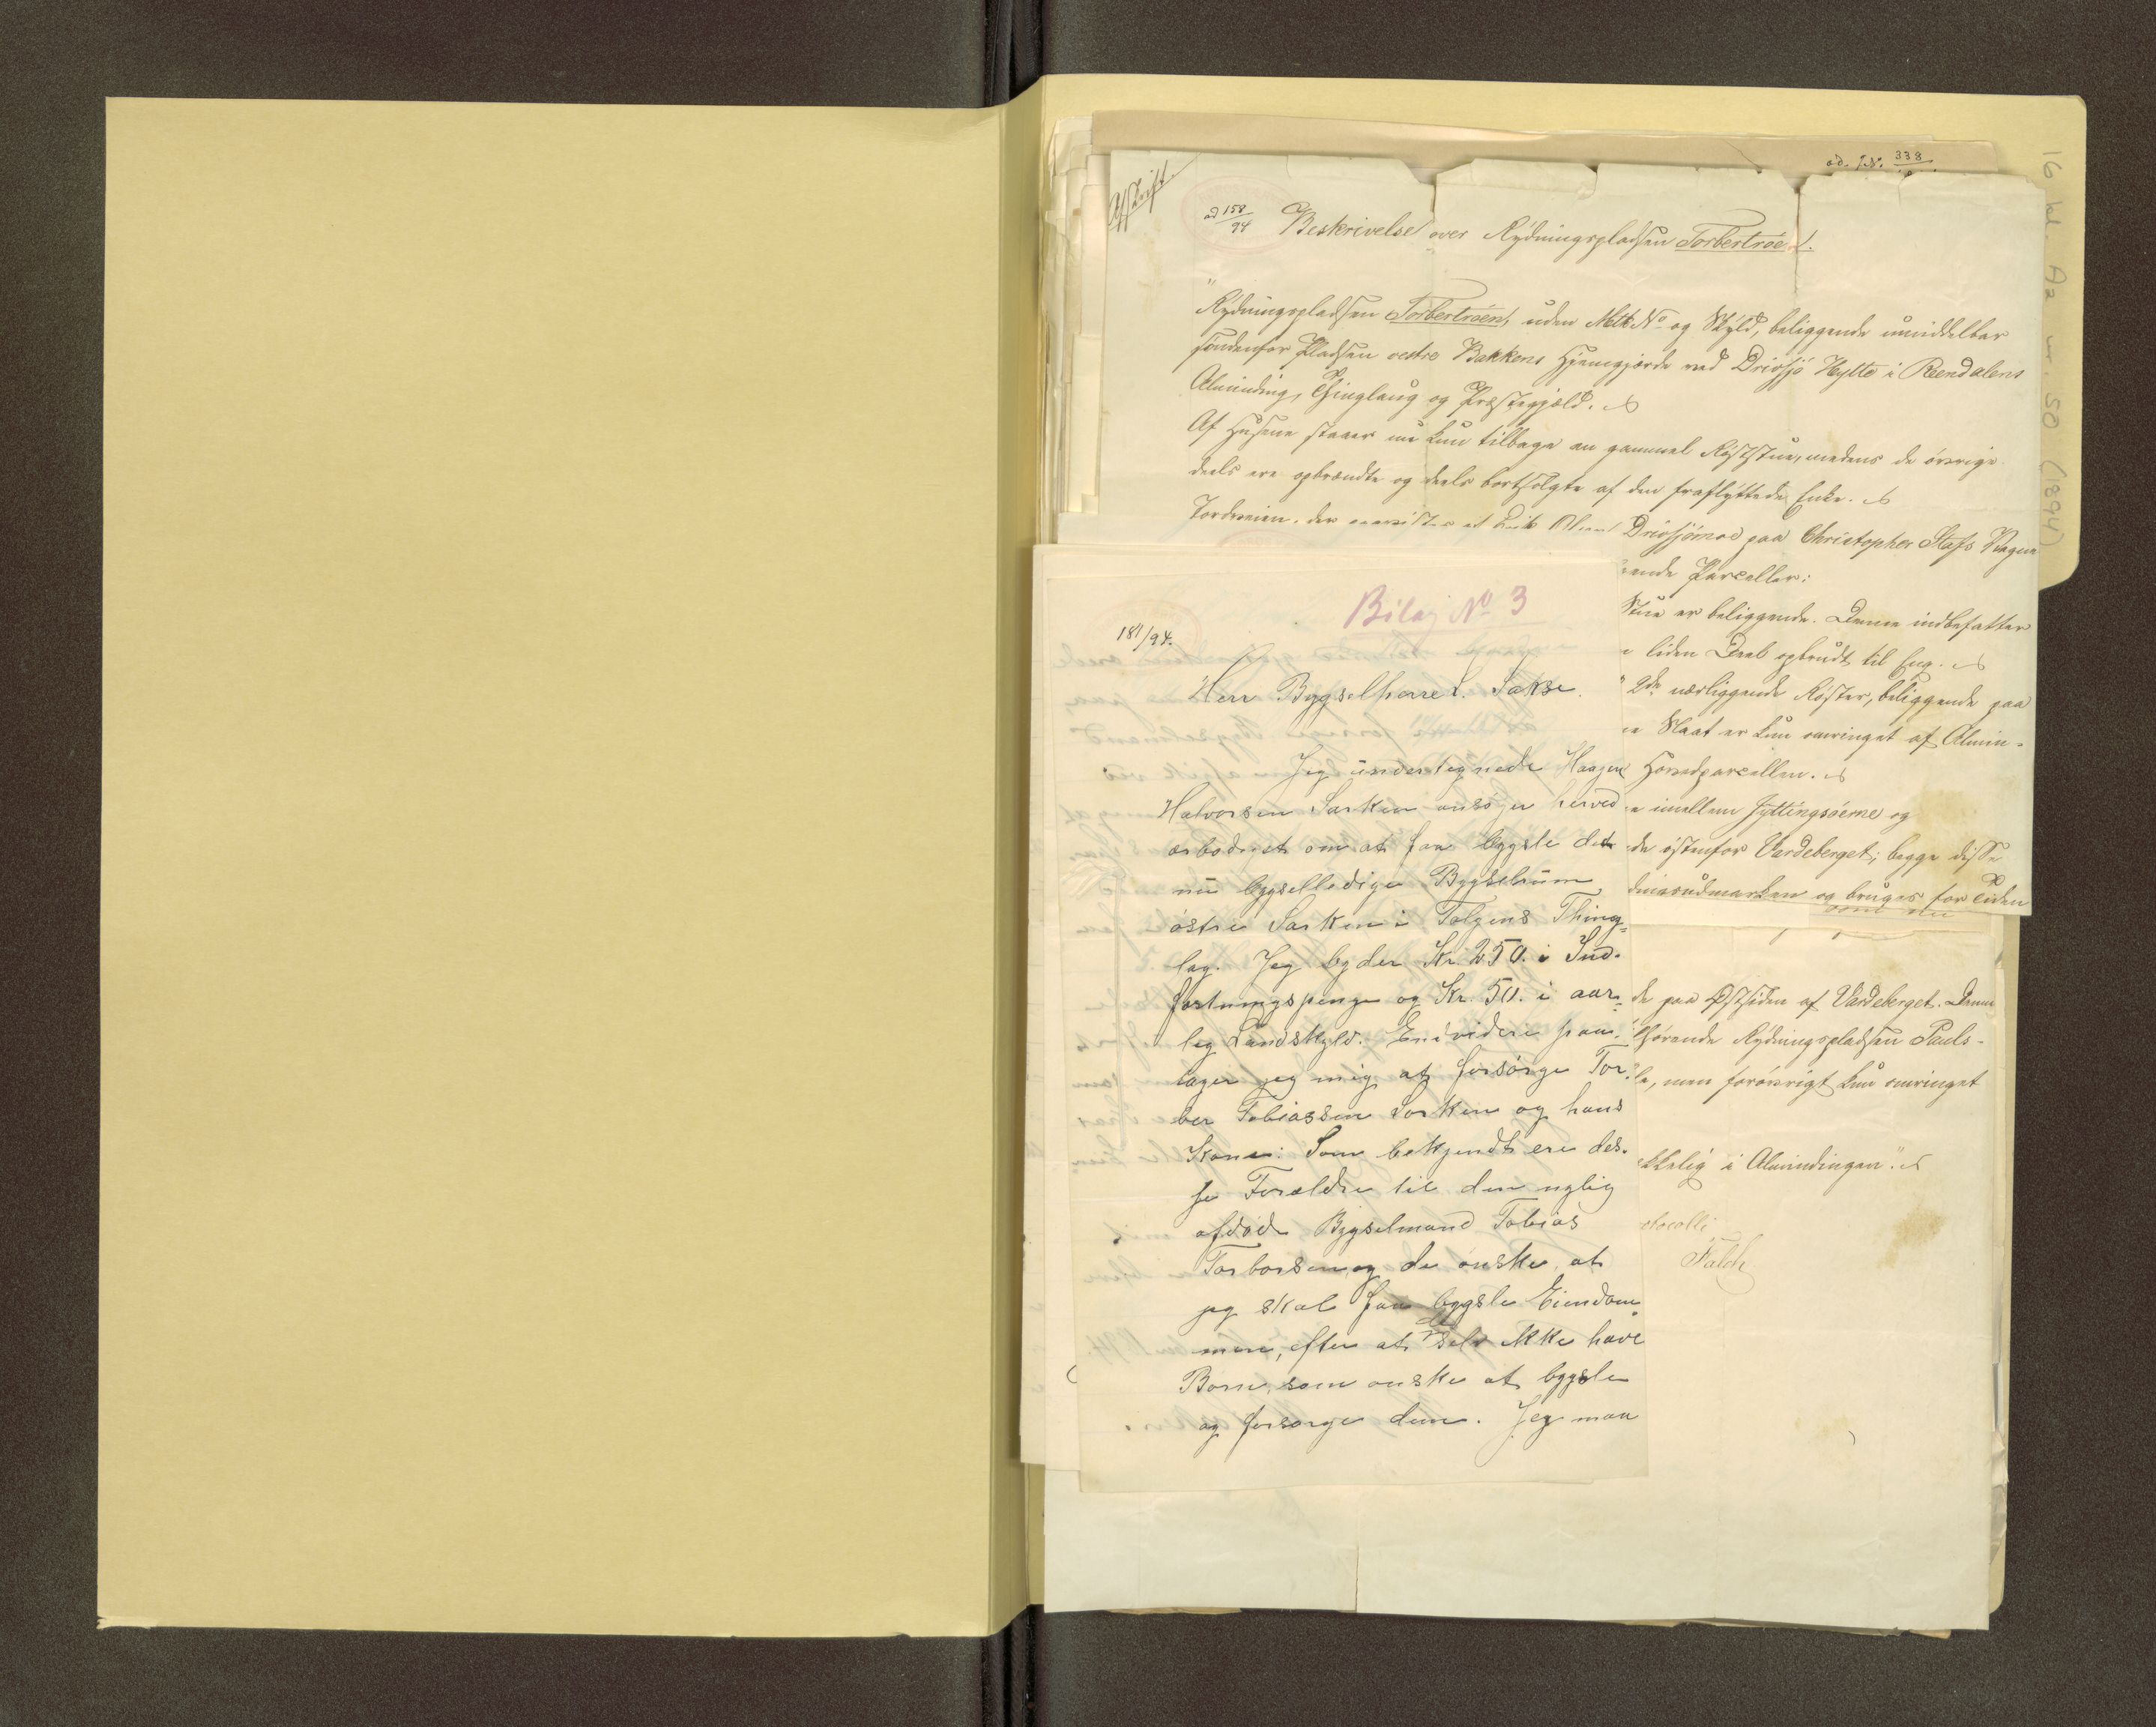 16 kl. Aa nr. 50 (1894)
ad. J.N. 338
Afskrift
ad 158/94
Beskrivelse over Rÿdningspladsen Torbertröe
"Rÿdningspladsen Torbertröen, uden Mtk No og Skÿld, beliggende umiddelbar
söndenfor Pladsen vestre Bakkens Hjemegjærde ved Drivsjö Hytte i Reendalens
Alminding, Thinglaug og Præstegjæld.
Af Husene staaer nu kun tilbage en gammel Röststue, medens de övrige
deels ere opbrændte og deels bortsolgte af den fraflÿttede Enke.
Jordveien, der
Drivsjömoe paa Christopher Stafs
ende Parceller:
Stue er beliggende. Denne indbefatter
liden Deel opbrudt til Eng.
2de nærliggende Röster, beliggende paa
Slaat er kun omringet af Almin-
Hovedparcellen.
imellem Jyttingsöerne og
de östenfor Vardeberget; begge disse
og bruges for Tiden
som nu
de paa Østsiden af Vardeberget. Denne
hörende Rÿdningspladsen Pauls-
le, men forövrigt kun omringet
i Almindingen".
Falch
Bilag No 3
181/94.
Herr Bygselherre L. Sakse.
Jeg undertegnede Haagen
Halvorsen Sorken ansöger herved
ærbödigst om at faa bygsle det
nu bygselledige Bygselrum
östre Sorken i Tolgens Thing=
lag. Jeg byder Kr. 250. i Ind-
fæstningspenge og Kr. 50. i aar-
leg Landskyld. Endvidere paa-
tager jeg mig at forsörge Tor-
ber Tobiassen Sorken og hans
Kone: Som bekjendt ere des-
se Forældre til den nylig
afdöde Bygselmand Tobias
Torborsen og de önske at
jeg skal faa bygsle Eiendom-
men, efter at de selv ikke have
Börn, som önske at bygsle
og forsörge dem. Jeg maa